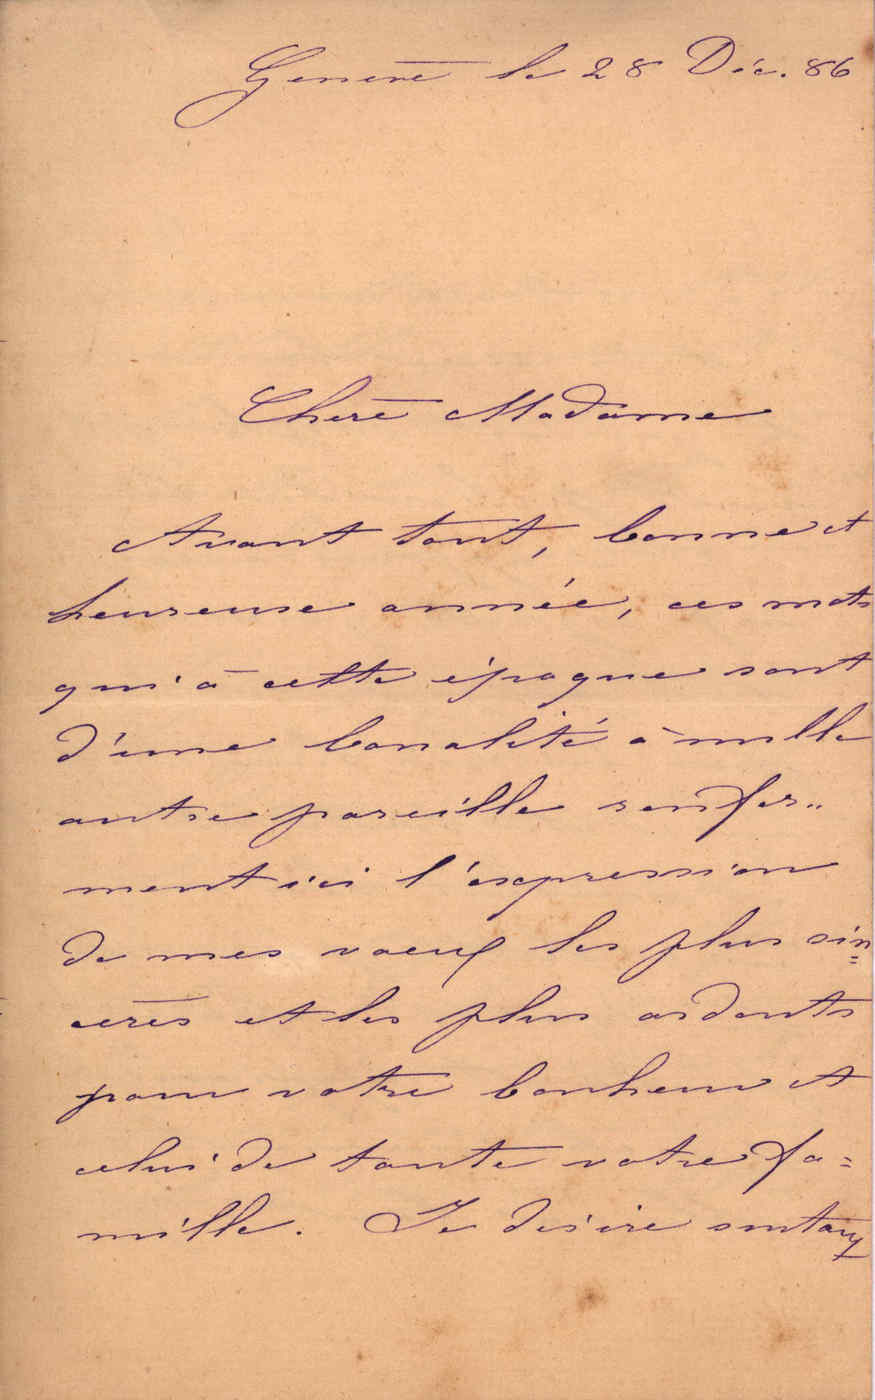 Genève le 28 Déc. 86
Chère Madame
Avant tout, bonne et
heureuse année, ces mots
qui à cette époque sont
d'une banalité à nulle
autre pareille renfer-
ment ici l'expression
de mes vœux les plus sin=
cères et les plus ardents
pour votre bonheur et
celui de toute votre fa=
mille. Je désire surtout